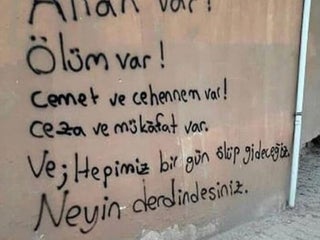 Allah var!
Ölüm var!
Cemet ve cehennem var!
Ceza ve mükâfat var.
Ve; Hepimiz bir gün ölüp gideceğiz.
Neyin derdindesiniz.